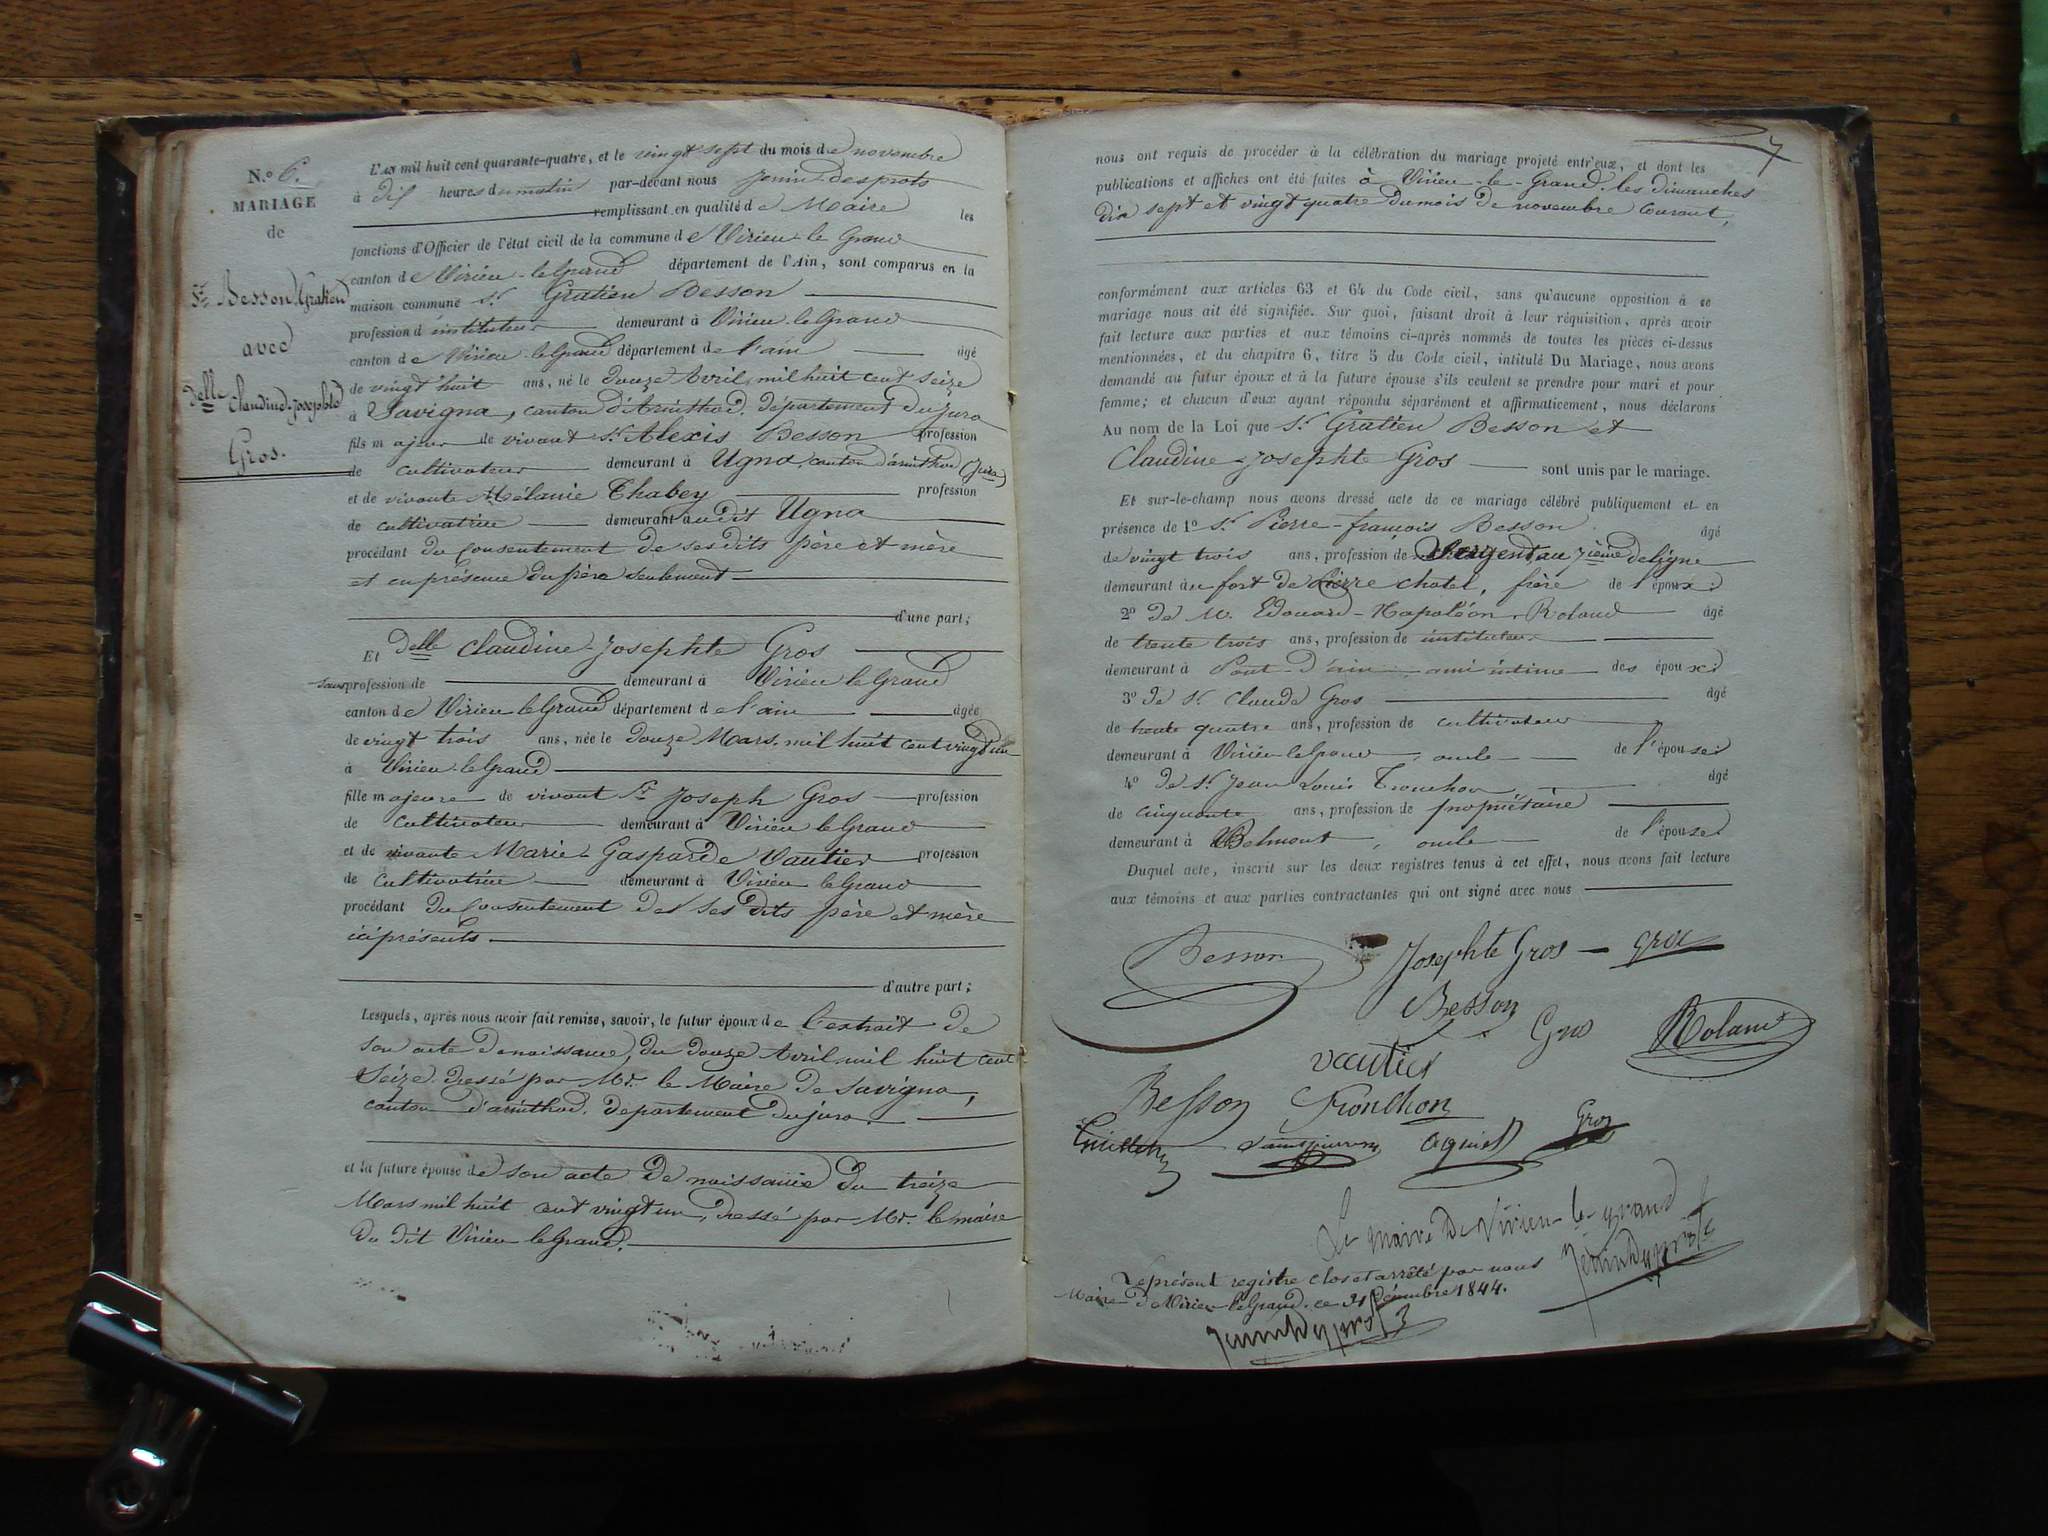 N.o 6.
MARIAGE
de
Sr. Besson Gratien
avec
delle Claudine-Josephte
Gros.
L'an mil huit cent quarante-quatre, et le vingt sept du mois de novembre
à dix heures du matin par-devant nous Jenin-desprots
remplissant en qualité de Maire les
fonctions d'Officier de l'état civil de la commune de Virieu-le Grand
canton de Virieu-le Grand département de l'Ain, sont comparus en la
maison commune Sr. Gratien Besson
profession d'instituteur demeurant à Virieu-le Grand
canton de Virieu-le Grand département de l'ain âgé
de vingt huit ans, né le Douze Avril mil huit cent seize
à Savigna, canton d'Arinthod, département du Jura
fils majeur de vivant Sr. Alexis Besson profession
de cultivateur demeurant à Ugna, canton d'arinthod (Jura)
et de vivante Mélanie Chabey profession
de cultivatrice demeurant audit Ugna
procédant du consentement de ses dits père et mère
et en présence du père seulement
d'une part;
Et delle Claudine-Josephte Gros
sans profession de demeurant à Virieu le Grand
canton de Virieu le Grand département de l'ain âgée
de vingt trois ans, née le Douze Mars mil huit cent vingt un
à Virieu-le Grand
fille majeure de vivant Sr. Joseph Gros profession
de cultivateur demeurant à Virieu le Grand
et de vivante Marie Gasparde Vautier profession
de cultivatrice demeurant à Virieu le Grand
procédant du consentement de ses dits père et mère
ici présents.
d'autre part;
Lesquels, après nous avoir fait remise, savoir, le futur époux de l'extrait de
son acte de naissance, du douze Avril mil huit cent
seize dressé par Mr. le Maire de Savigna,
canton d'arinthod, departement du jura.
et la future épouse de son acte de naissance du treize
Mars mil huit cent vingt un, dressé par Mr. le maire
du dit Virieu le Grand.
7
nous ont requis de procéder à la célébration du mariage projeté entr'eux, et dont les
publications et affiches ont été faites à Virieu-le-Grand les dimanches
dix sept et vingt quatre du mois de novembre courant,
conformément aux articles 63 et 64 du Code civil, sans qu'aucune opposition à ce
mariage nous ait été signifiée. Sur quoi, faisant droit à leur réquisition, après avoir
fait lecture aux parties et aux témoins ci-après nommés de toutes les pièces ci-dessus
mentionnées, et du chapitre 6, titre 5 du Code civil, intitulé Du Mariage, nous avons
demandé au futur époux et à la future épouse s'ils veulent se prendre pour mari et pour
femme; et chacun d'eux ayant répondu séparément et affirmativement, nous déclarons
Au nom de la Loi que Sr. Gratien Besson et
Claudine-Josephte Gros sont unis par le mariage.
Et sur-le-champ nous avons dressé acte de ce mariage célébré publiquement et en
présence de 1o Sr. Pierre-françois Besson âgé
de vingt trois ans, profession de sergent au 7ieme de ligne
demeurant au fort de Pierre chatel, frère de l'époux;
2o de M. Edouard-Napoléon Roland âgé
de trente trois ans, profession de instituteur
demeurant à Pont-d'ain, ami intime des époux;
3o de Sr. Claude Gros âgé
de trente quatre ans, profession de cultivateur
demeurant à Virieu le Grand, oncle de l'épouse;
4o de Sr. Jean Louis Tronchon âgé
de cinquante ans, profession de propriétaire
demeurant à Belmont, oncle de l'épouse.
Duquel acte, inscrit sur les deux registres tenus à cet effet, nous avons fait lecture
aux témoins et aux parties contractantes qui ont signé avec nous
Besson Josephte Gros gros
Besson
Gros Roland
vautier
Besson Tronchon
Gros
Le maire de Virieu-le-grand
Le présent registre clos et arrêté par nous
Maire de Virieu le Grand, ce 31 décembre 1844.